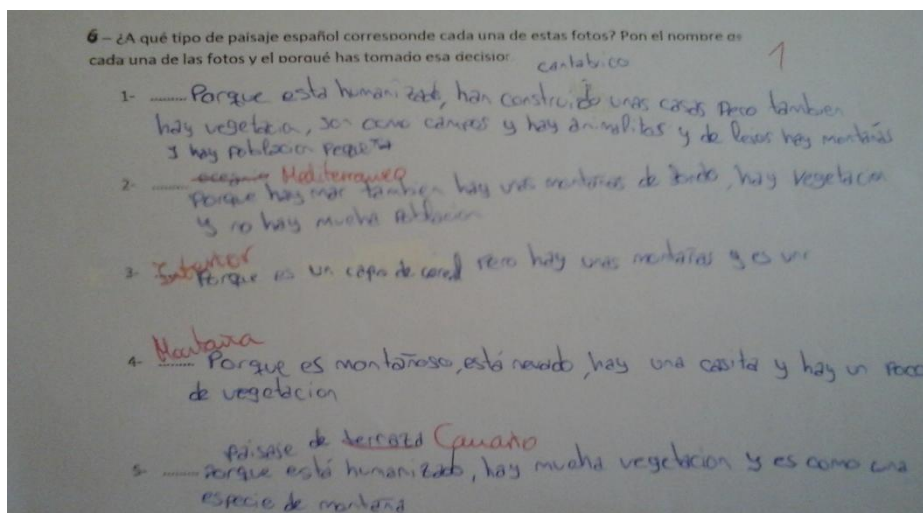 6 – ¿A qué tipo de paisaje español corresponde cada una de estas fotos? Pon el nombre
cada una de las fotos y el porqué has tomado esa decisión
cantabrico
1
1- ........ Porque esta humanizado, han construido unas casas pero tambien
hay vegetacia, son como campos y hay animalitos y de lejos hay montañas
y hay poblacion pequeña
Mediterraneo
2- ........ Porque hay mar tambien hay unas montañas de fondo, hay vegetacion
y no hay mucha poblacion
Interior
3- Porque es un de pero hay unas montañas y es
Montaña
4- ........ Porque es montañoso, está nevado, hay una casita y hay un poco
de vegetacion
paisase de terraza Canario
5- ........ Porque está humanizado, hay mucha vegetacion y es como una
especie de montaña